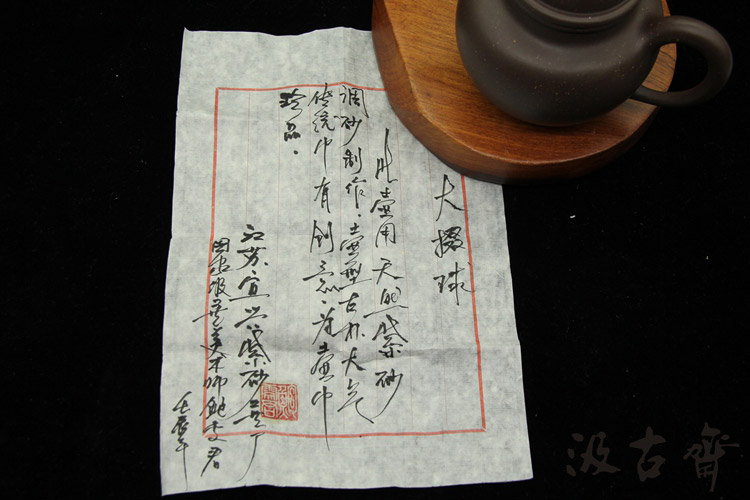 大掇球
此壶用天然紫砂
调砂制作、壶型古朴大气
传统中有创意、为壶中
珍品。
江苏宜兴紫砂工艺厂
国家级工艺美术师鲍志君
壬辰年
汲古齋